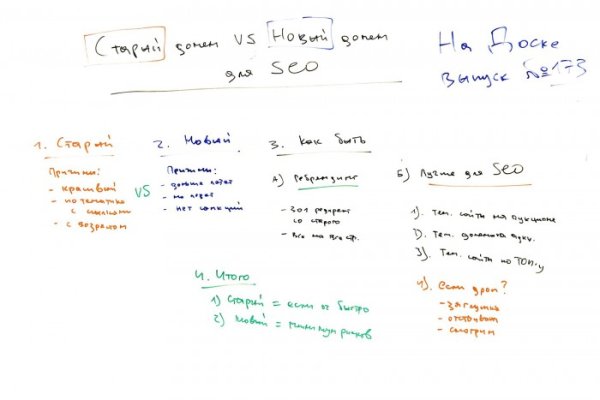 Старый домен VS Новый домен
для SEO
На Доске
выпуск №173
1. Старый
Причины:
- красивый
- по тематике
с ссылками
- с возрастом
VS
2. Новый
Причины:
- дольше
- не
- нет санкций
3. Как быть
А) Ребрендинг
- 301 редирект
со старого
- Все на все стр.
Б) Лучше для SEO
1). Тем. сайты на аукционе
2). Тем. домена аукц.
3). Тем. сайты по ТОПу
4). если дроп?
- заглушка
- отстаиваем
- смотрим
4. Итого
1) Старый = если оч быстро
2) Новый = минимум рисков